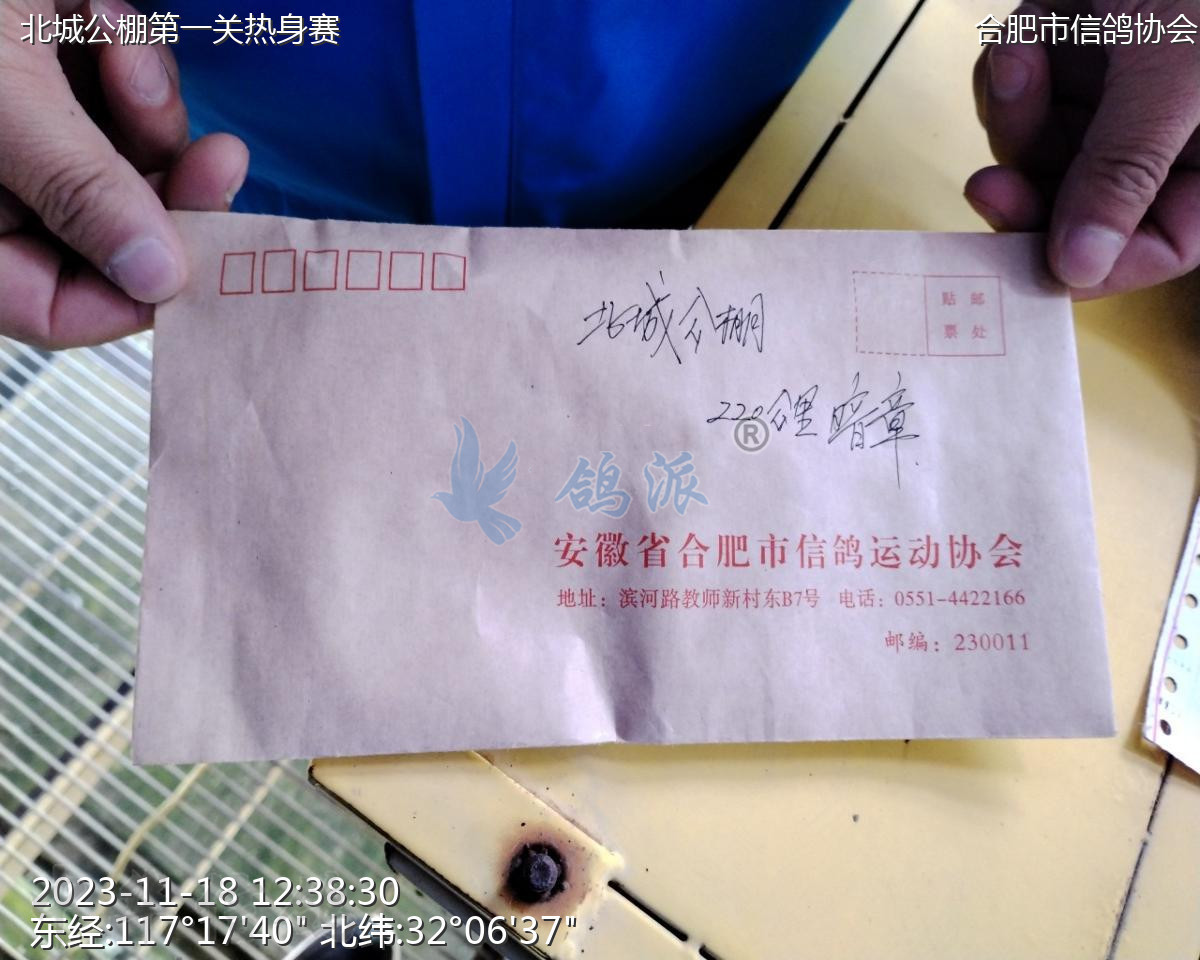 北城公棚第一关热身赛
合肥市信鸽协会
贴 邮
票 处
北城公棚
220公里暗章
®
鸽派
安徽省合肥市信鸽运动协会
地址：滨河路教师新村东B7号 电话：0551-4422166
邮编：230011
2023-11-18 12:38:30
东经:117°17'40" 北纬:32°06'37"